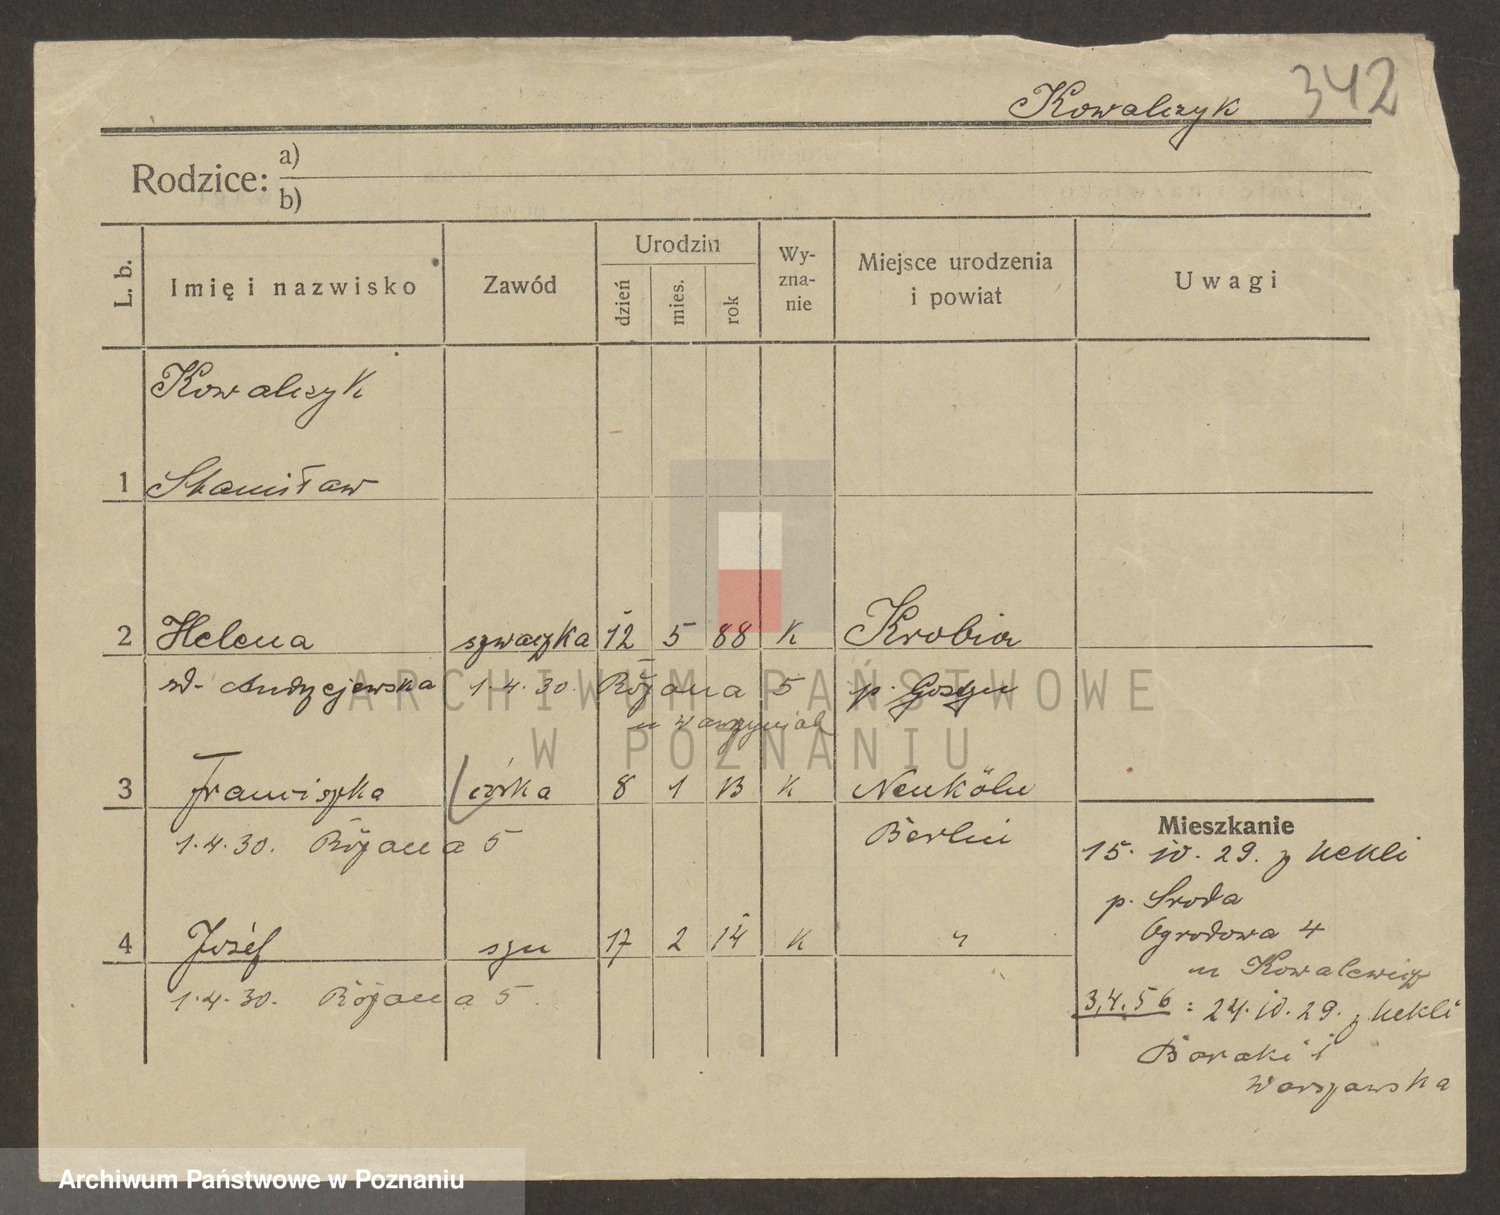 Kowalczyk 342
Rodzice: a)
b)
L. b. Imię i nazwisko Zawód Urodzin dzień mies. rok Wy-zna-nie Miejsce urodzenia i powiat Uwagi
Kowalczyk
1 Stanisław
2 Helena szwaczka 12 5 88 K Krobia
zd. Andrzejewska 1.4.30. Różana 5 p. Gostyn
u Wawrzyniak
3 Franciszka córka 8 1 13 K Neukölu
1.4.30. Różana 5 Berlin
4 Józef syn 17 2 14 K "
1.4.30. Różana 5.
Mieszkanie
15. 10. 29. z Nekli
p. Sroda
Ogrodowa 4
u Kowalewicz
3,4,5 6 : 24. 10. 29. z Nekli
Baraki 1
Warszawska
ARCHIWUM PAŃSTWOWE
W POZNANIU
Archiwum Państwowe w Poznaniu